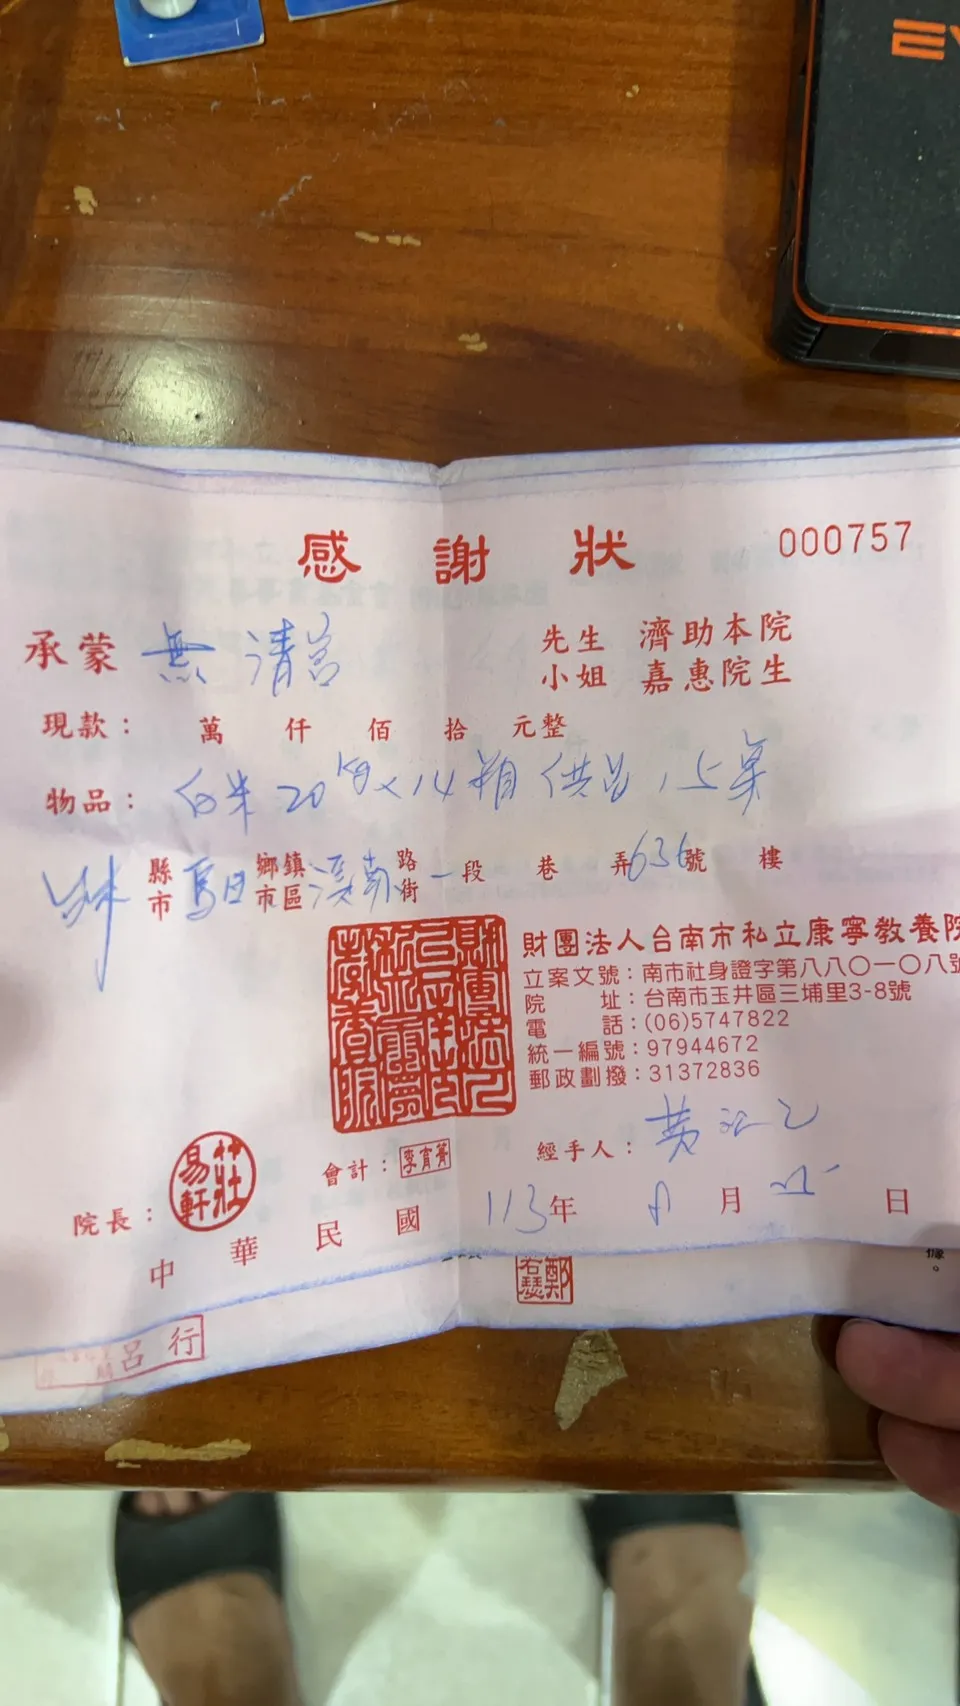 EV
感謝狀 000757
承蒙 無 清宮 先生 小姐 濟助本院 嘉惠院生
現款： 萬 仟 佰 拾 元整
物品： 白米20kg×14箱 供品15桌
縣市 鄉鎮市區 溪南路街一段 巷 弄636號 樓
財團法人台南市私立康寧教養院
立案文號：南市社身證字第八八〇一〇八號
院 址：台南市玉井區三埔里3-8號
電 話：(06)5747822
統一編號：97944672
郵政劃撥：31372836
經手人：黃
會計：李宵菁
院長：莊易軒
中華民國 113年 8月 25日
據。
鄭若瑟
行 呂